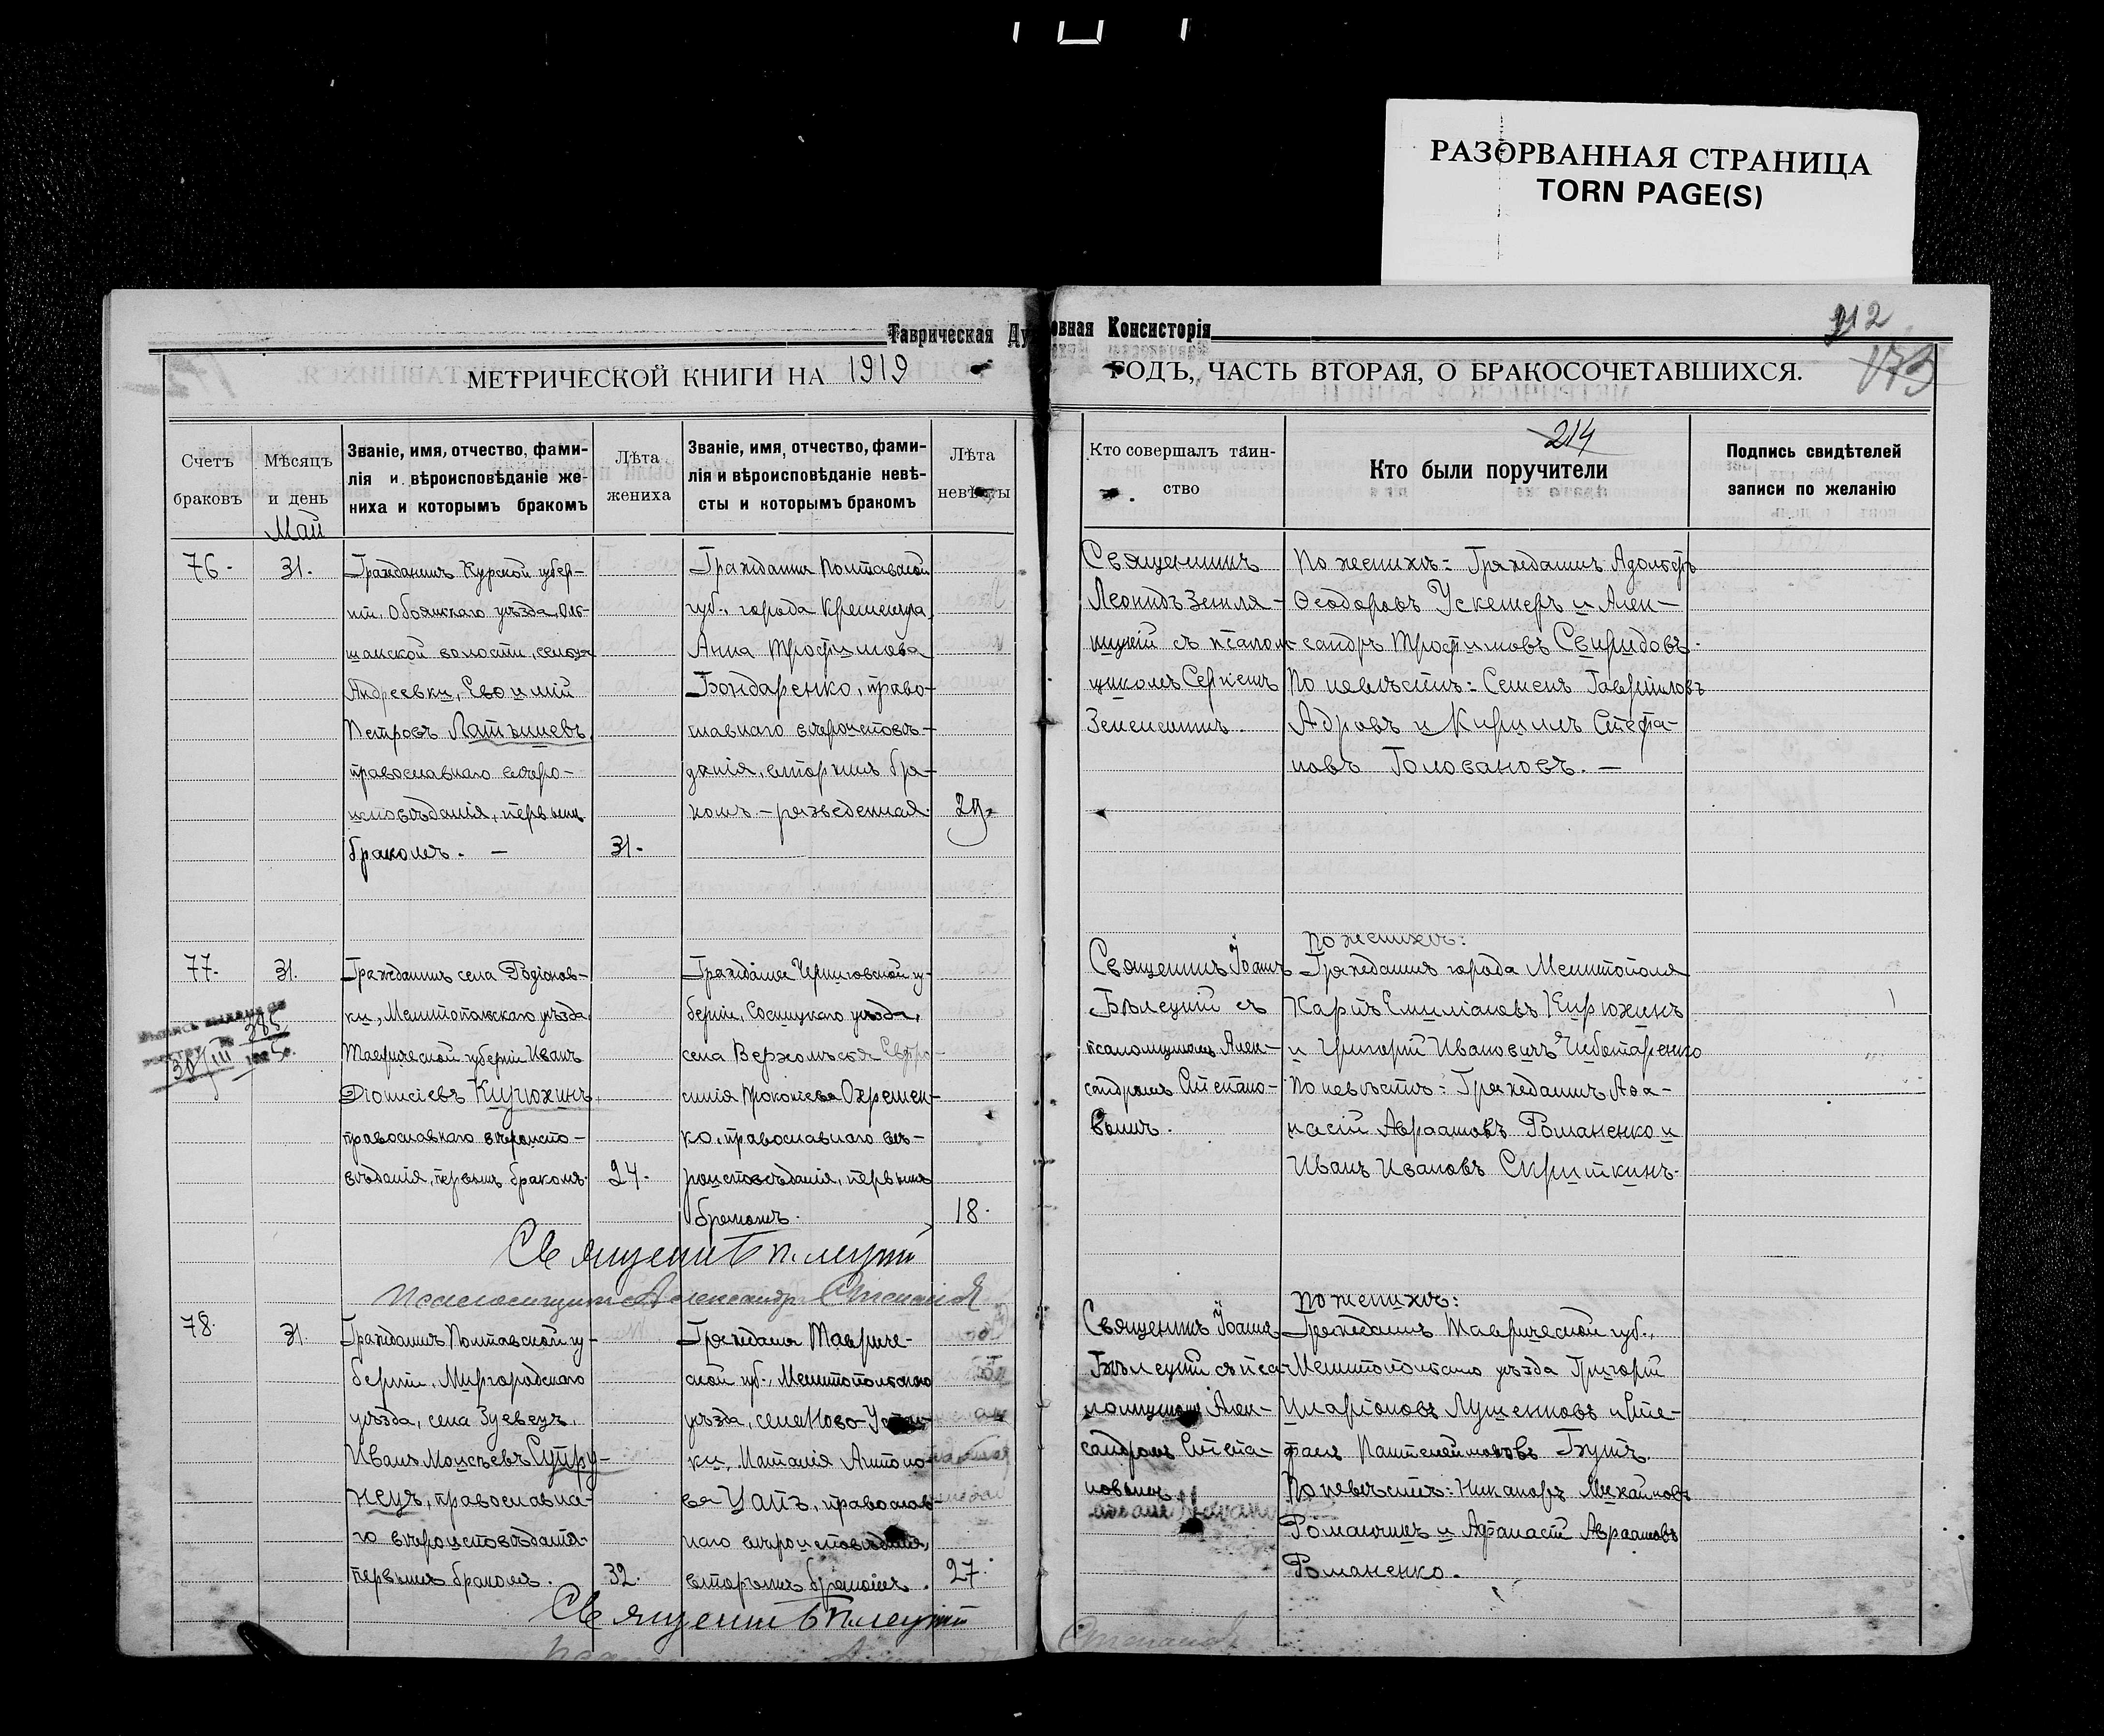 РАЗОРВАННАЯ СТРАНИЦА
TORN PAGE(S)
Таврическая Ду
овная Консисторія
212
173
МЕТРИЧЕСКОЙ КНИГИ НА 1919
ГОДЪ, ЧАСТЬ ВТОРАЯ, О БРАКОСОЧЕТАВШИХСЯ.
Счетъ
браковъ
Мѣсяцъ
и день
Званіе, имя, отчество, фами-
лія и вѣроисповѣданіе же-
ниха и которымъ бракомъ
Лѣта
жениха
Званіе, имя, отчество, фами-
лія и вѣроисповѣданіе невѣ-
сты и которымъ бракомъ
Лѣта
невѣсты
Кто совершалъ таин-
ство
214
Кто были поручители
Подпись свидѣтелей
записи по желанію
Май
76.
31.
Гражданинъ Курской губер-
ніи, Обоянскаго уѣзда,
волости,
Андреевки, Евѳимій
Петровъ Латышевъ,
православнаго вѣро-
исповѣданія, первымъ
бракомъ. —
31.
Гражданка Полтавской
губ., города Кременчуга,
Анна Трофимова
Бондаренко, право-
славнаго вѣроисповѣ-
данія, вторымъ бра-
комъ – разведенная.
29.
Священникъ
Леонидъ
съ псалом-
щикомъ Сергіемъ
По женихѣ: Гражданинъ Адольфъ
Ѳеодоровъ и Алек-
сандръ Трофимовъ Свиридовъ.
По невѣстѣ: Семенъ Гавріиловъ
Адровъ и Кириллъ Стефа-
новъ Головановъ. —
77.
31.
Гражданинъ села Родіонов-
ки, Мелитопольскаго уѣзда,
Таврической губерніи Иванъ
Діонисіевъ Кирюхинъ,
православнаго вѣроиспо-
вѣданія, первымъ бракомъ.
24.
Гражданка Черниговской гу-
берніи, Сосницкаго уѣзда,
села Евфро-
синія Прокопіева Охремен-
ко, православнаго вѣ-
роисповѣданія, первымъ
бракомъ.
18.
385
30/III
Священникъ Іоаннъ
Бѣлецкій съ
псаломщикомъ Алек-
сандромъ Степано-
вымъ.
По женихѣ:
Гражданинъ города Мелитополя
Карпъ Емиліановъ Кирюхинъ
и Григорій Ивановичъ Чеботаренко
По невѣстѣ: Гражданинъ Аѳа-
насій Авраамовъ Романенко и
Иванъ Ивановъ Скрипкинъ.
Священникъ Бѣлецкій
Псаломщикъ Александръ Степановъ
78.
31.
Гражданинъ Полтавской гу-
берніи, Миргородскаго
уѣзда, села Зуевецъ,
Иванъ Моисѣевъ Супру-
нецъ, православна-
го вѣроисповѣданія,
первымъ бракомъ.
32.
Гражданка Тавриче-
ской губ., Мелитопольскаго
уѣзда, села Ново-
ки, Наталія Антоно-
ва Цапъ, православ-
наго вѣроисповѣданія,
вторымъ бракомъ.
27.
Священникъ Іоаннъ
Бѣлецкій съ пса-
ломщикомъ Алек-
сандромъ Степа-
новымъ
По женихѣ:
Гражданинъ Таврической губ.,
Мелитопольскаго уѣзда Григорій
Иларіоновъ Лушенковъ и Сте-
фанъ Пантелеймоновъ Бутъ.
По невѣстѣ: Никаноръ Михайловъ
Романчикъ и Афанасій Авраамовъ
Романенко.
Священникъ Бѣлецкій
Степановъ